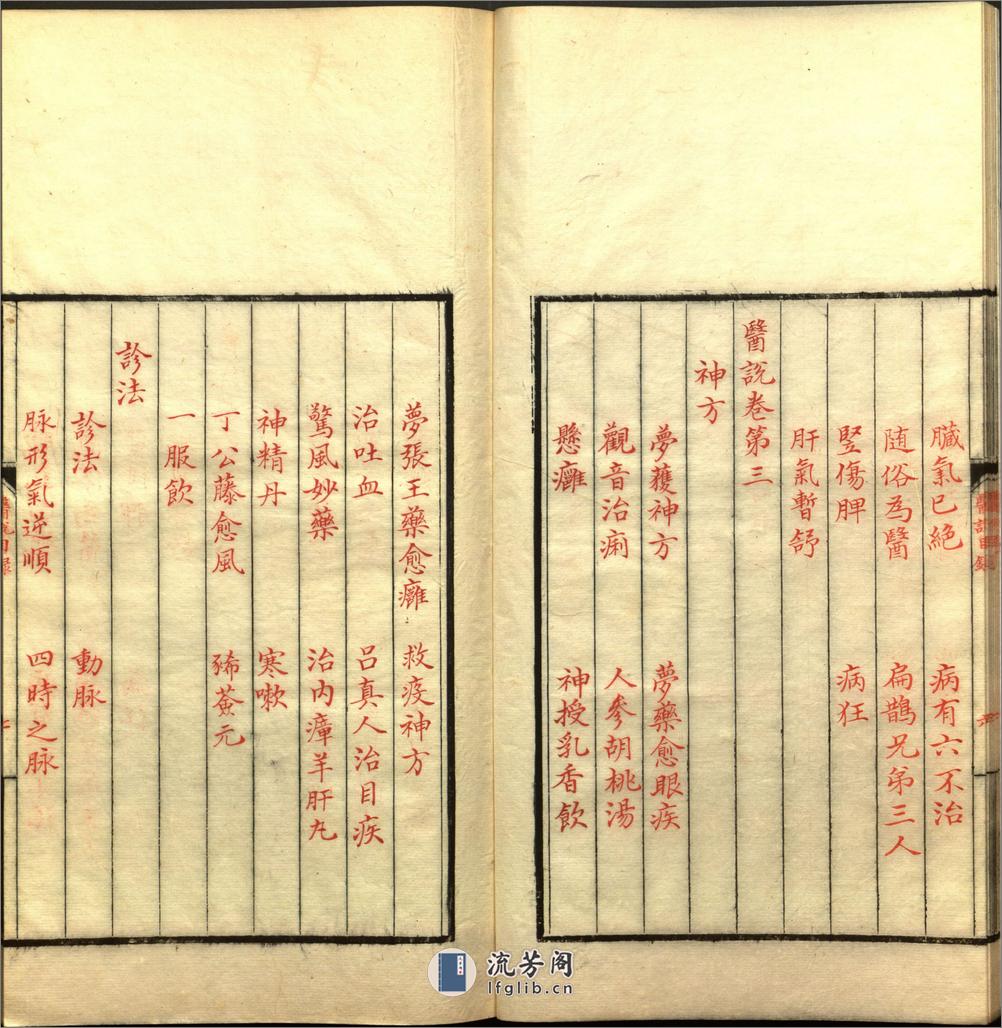 臓氣已絶　病有六不治
随俗為醫　扁鵲兄弟三人
竪傷脾　病狂
肝氣暫舒
醫說卷第三
神方
夢獲神方　夢藥愈眼疾
觀音治痢　人參胡桃湯
懸癰　神授乳香飲
夢張王藥愈癰　救疫神方
治吐血　吕真人治目疾
驚風妙藥　治內瘴羊肝丸
神精丹　寒嗽
丁公藤愈風　豨薟元
一服飲
診法
診法　動脉
脉形氣逆順　四時之脉
醫說目錄
流芳阁
lfglib.cn